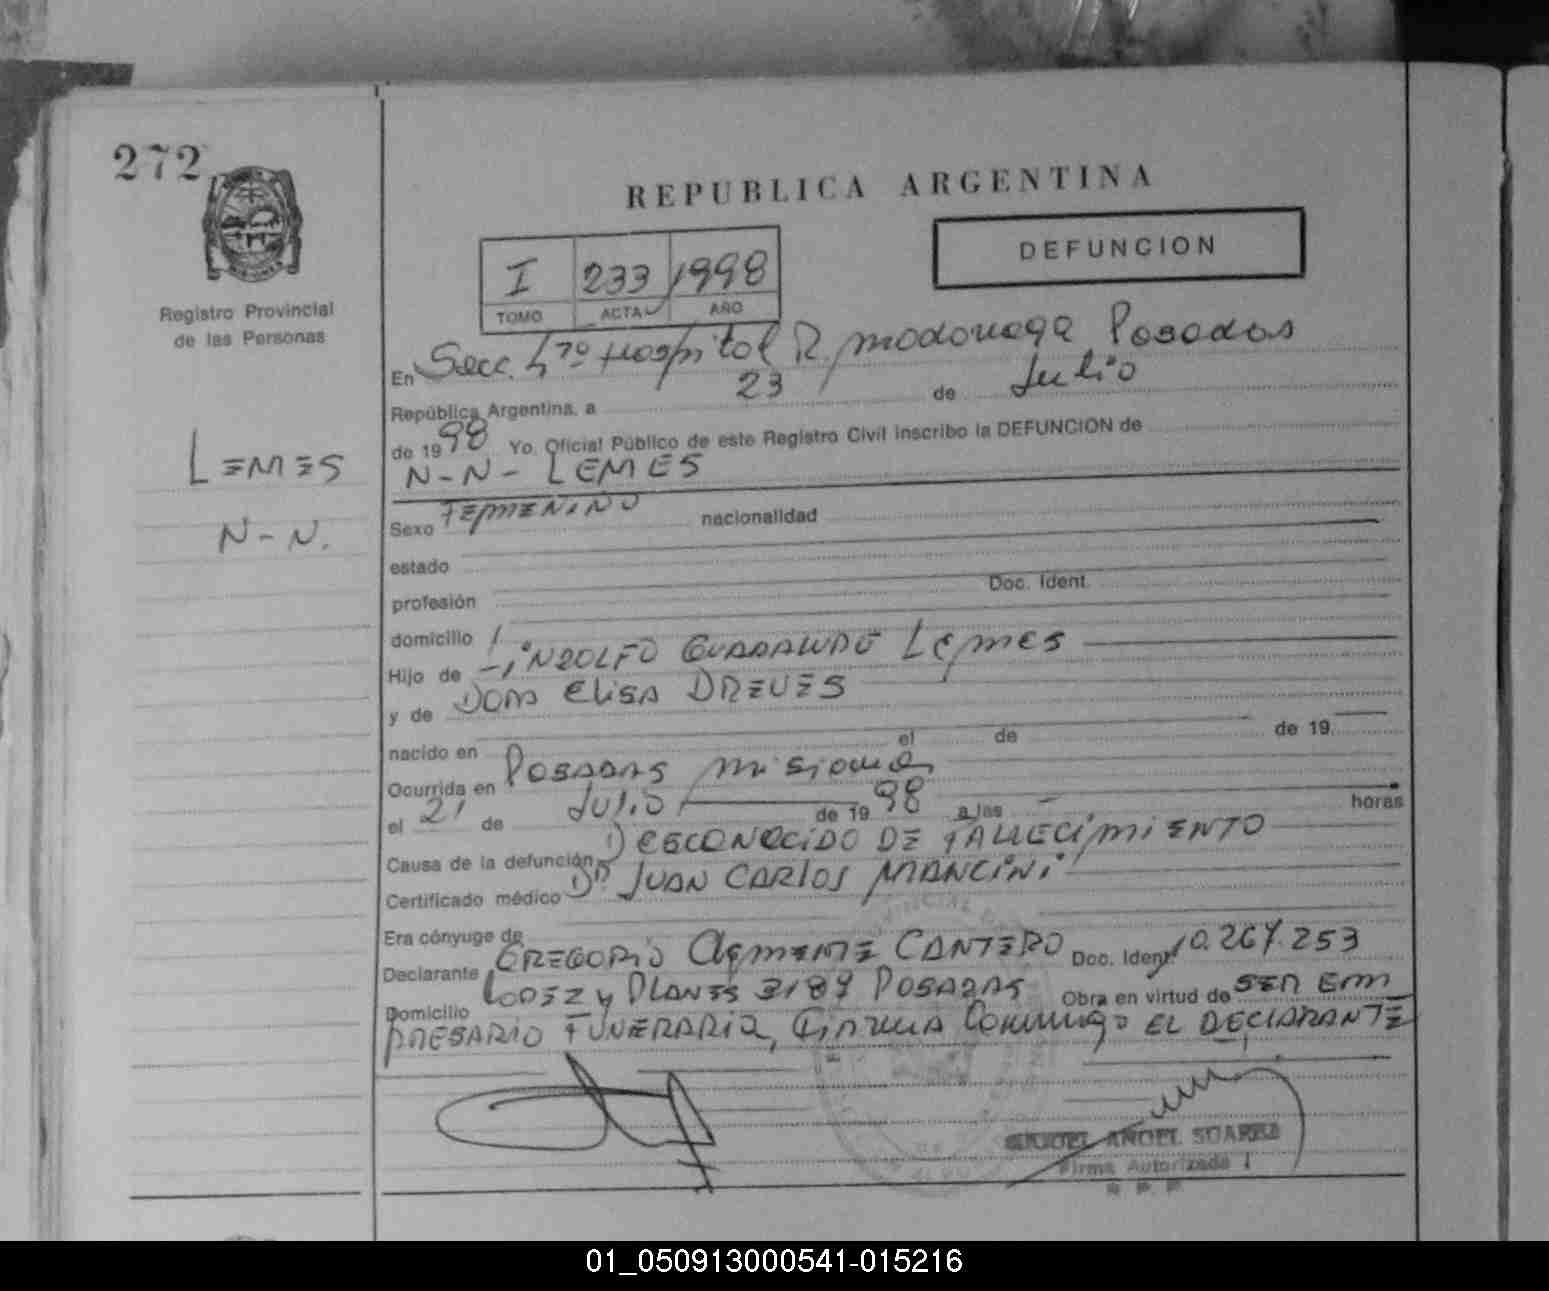 272
Registro Provincial
de las Personas
REPUBLICA ARGENTINA
I 233 1998
TOMO ACTA AÑO
DEFUNCION
En Secc. 4ª Hospital R. Madariaga Posadas
República Argentina, a 23 de Julio
de 1998 Yo, Oficial Público de este Registro Civil inscribo la DEFUNCION de
N-N- LEMES
LEMES
N-N.
Sexo FEMENINO nacionalidad
estado
profesión Doc. Ident.
domicilio
Hijo de LEMES
y de ELISA DREVES
nacido en el de de 19
Ocurrida en POSADAS Misiones
el 21 de JULIO de 1998 a las horas
Causa de la defunción DESCONOCIDO DE FALLECIMIENTO
Certificado médico Dr. JUAN CARLOS MANCINI
Era cónyuge de
Declarante GREGORIO CLEMENTE CANTERO Doc. Ident. 10.264.253
Domicilio LOPEZ y PLANES 3189 POSADAS Obra en virtud de SER EM
PRESARIO FUNERARIO, Firma Conmigo EL DECLARANTE
MIGUEL ANGEL SUAREZ
Firma Autorizada I
R. P. P.
01_050913000541-015216